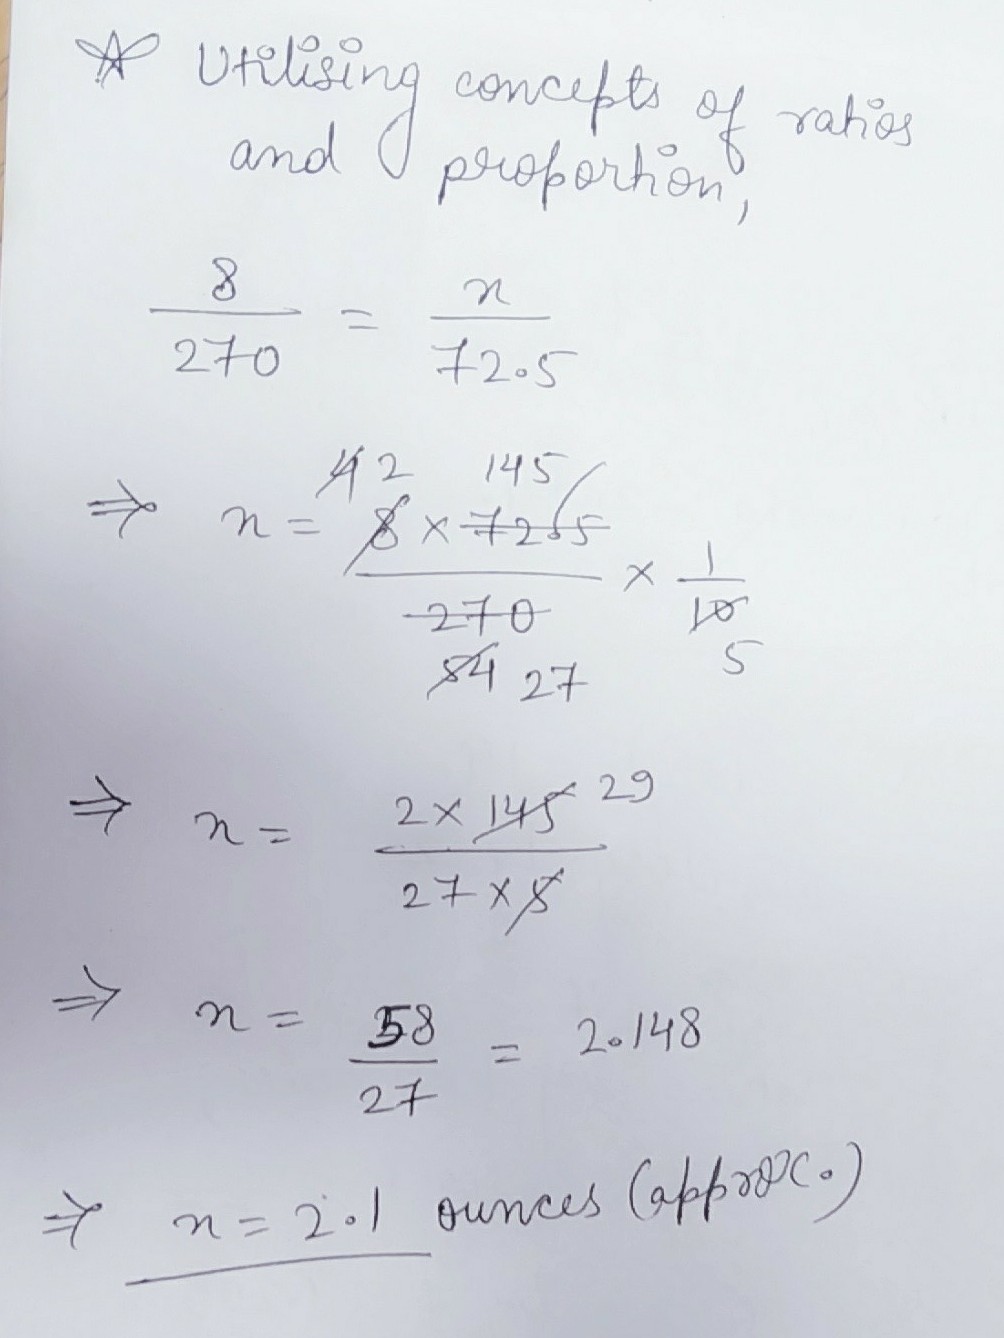 ☆ Utilising concepts of ratios
and proportion,
8/270 = x/72.5
⇒ x = 8 × 72.5/270 × 1/10
4 2 145
54 27 5
⇒ x = 2 × 145/27 × 5
29
⇒ x = 58/27 = 2.148
⇒ x = 2.1 ounces (approx.)